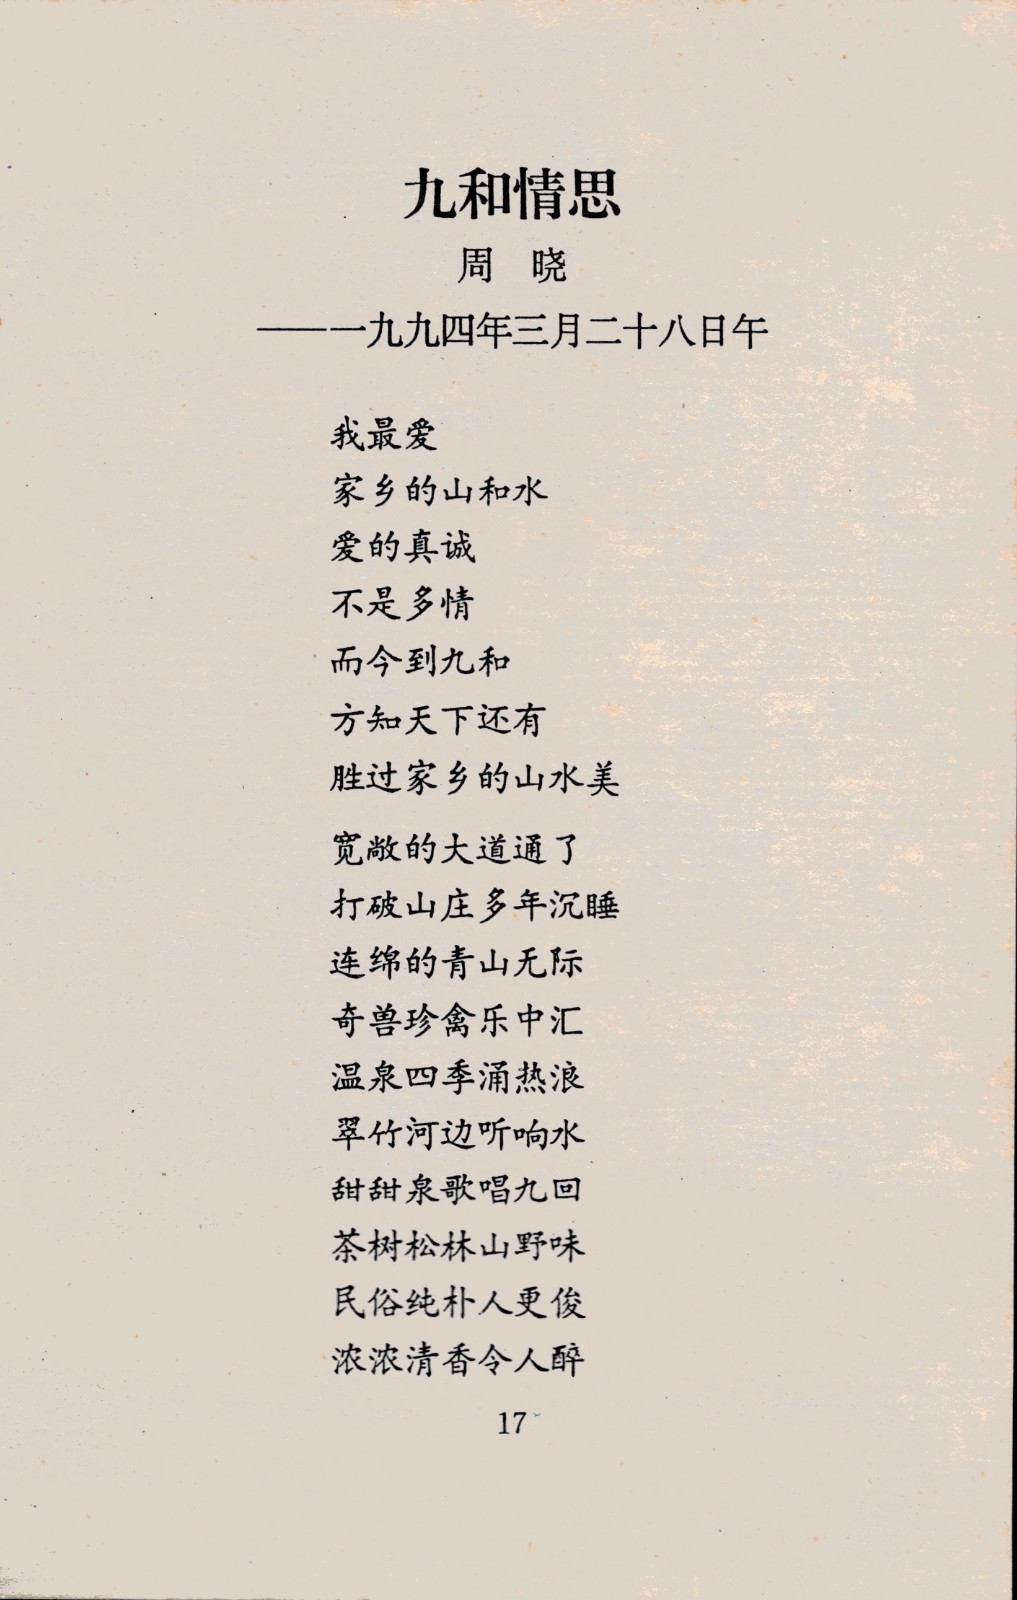 九和情思
周　晓
——一九九四年三月二十八日午
我最爱
家乡的山和水
爱的真诚
不是多情
而今到九和
方知天下还有
胜过家乡的山水美
宽敞的大道通了
打破山庄多年沉睡
连绵的青山无际
奇兽珍禽乐中汇
温泉四季涌热浪
翠竹河边听响水
甜甜泉歌唱九回
茶树松林山野味
民俗纯朴人更俊
浓浓清香令人醉
17